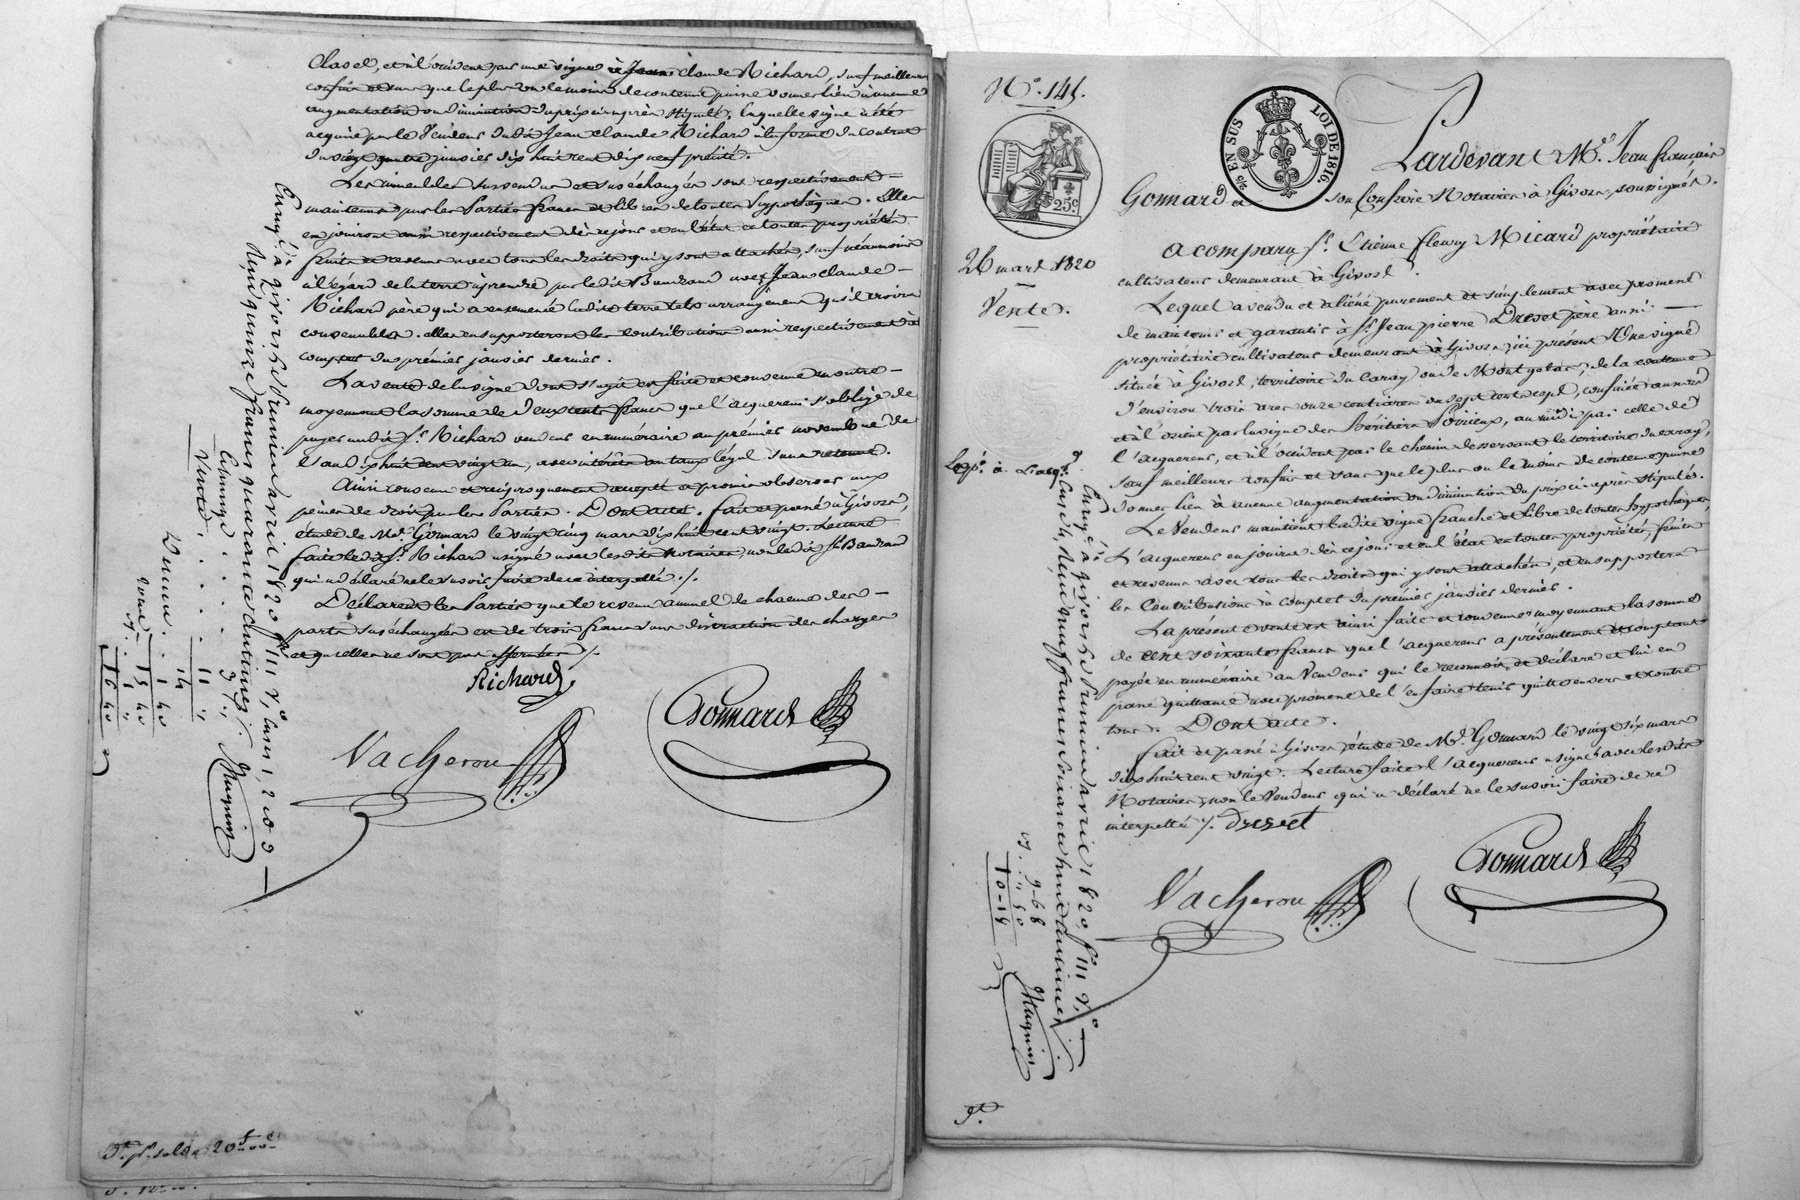 Clavel, et à l'occident par une vigne à Jean Claude Richard, sauf meilleurs
confins et sans que le plus ou le moins de contenu puisse donner lieu à aucune
augmentation ou diminution du prix ci après stipulé, laquelle vigne a été
acquise par le vendeur dudit Jean Claude Richard à la forme du contrat
du vingt quatre janvier dix huit cent dix neuf précité.
Les immeubles susvendus et sus échangés sont respectivement
maintenus par les Parties francs et libres de toutes hypothèques. Elles
en jouiront aussi respectivement dès ce jour et en l'état en toute propriété
fruits et revenus avec tous les droits qui y sont attachés, sauf néanmoins
à l'égard de la terre à prendre par ledit Bandrand avec Jean Claude
Richard père qui a ensemencé ladite terre tels arrangements qu'il croira
convenables. elles en supporteront les contributions aussi respectivement à
compter du premier janvier dernier.
La vente de la vigne dont s'agit est faite et convenue outre
moyennant la somme de deux cents francs que l'acquereur s'oblige de
payer audit Sr. Richard vendeur en numéraire au premier novembre de
l'an dix huit cent vingt un, avec intérêts au taux légal sans retenue.
Ainsi convenu et réciproquement accepté et promis observer aux
peines de droit par les Parties. Dont acte. fait et passé à Givors,
étude de Me. Gonnard le vingt cinq mars dix huit cent vingt. Lecture
faite ledit Sr. Richard a signé avec lesdits Notaires non ledit Sr. Bandrand
qui a déclaré ne le savoir faire de ce interpellé ./.
Déclarent les Parties que le revenu annuel de chacune des
parts sus échangées est de trois francs sans distraction des charges
et qu'elles ne sont pas affermées ./.
Richard
Vacheron
Gonnard
Enreg.é à givors le premier avril 1820 f.o 111 v.o cases 1, 2 et 3
Reçu quinze francs quarante centimes ./. Magnin
Vente . . . . 11 "
Echange . . .
14 "
Dixieme . 1 40
15 40
1 "
16 40
20 f
N.o 145.
25c.
EN SUS
LOI DE 1816.
26 mars 1820
Vente.
Pardevant Me. Jean françois
Gonnard et son Confrère Notaires à Givors, soussignés.
a comparu Sr. Etienne fleury Micard propriétaire
cultivateur demeurant à Givors.
Lequel a vendu et aliéné purement et simplement avec promesse
de maintenir et garantir à Sr. Jean pierre Drevet père aussi
propriétaire cultivateur demeurant à Givors, ici présent Une vigne
située à Givors, territoire du Caray ou de Montgelas, de la contenue
d'environ trois ares onze centiares ou sept cent cepts, confinée au nord
et à l'orient par la vigne des héritiers Poirieux, au midi par celle de
l'acquereur, et à l'occident par le chemin desservant le territoire du caray,
sauf meilleurs confins et sans que le plus ou le moins de contenu puisse
donner lieu à aucune augmentation ou diminution du prix ci après stipulé.
Le Vendeur maintient ladite vigne franche et libre de toutes hypothèques,
L'acquereur en jouira dès ce jour et en l'état en toute propriété, fruits
et revenus avec tous les droits qui y sont attachés, et en supportera
les Contributions à compter du premier janvier dernier.
La présente vente est ainsi faite et convenue moyennant la somme
de cent soixante francs que l'acquereur a présentement et comptant
payée en numéraire au Vendeur qui le reconnoit, et déclare et lui en
passe quittance avec promesse de l'en faire tenir quitte envers et contre
tous. Dont acte.
fait et passé à Givors étude de Me. Gonnard le vingt six mars
dix huit cent vingt. Lecture faite l'acquereur a signé avec lesdits
Notaires, non le Vendeur qui a déclaré ne le savoir faire de ce
interpellé ./. Drevet
Vacheron
Gonnard
Exp.on à l'acq.r
Enreg.é à givors le premier avril 1820 f.o 111 v.o
Reçu neuf francs soixante huit centimes ./. Magnin
9-68
" 50
10-18